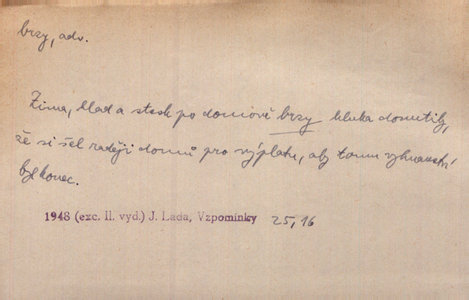 brzy, adv.
Zima, hlad a stesk po domově brzy kluka donutily,
že si šel raději domů pro výplatu, aby tomu vyhnanství
byl konec.
1948 (exc. II. vyd.) J. Lada, Vzpomínky 25, 16